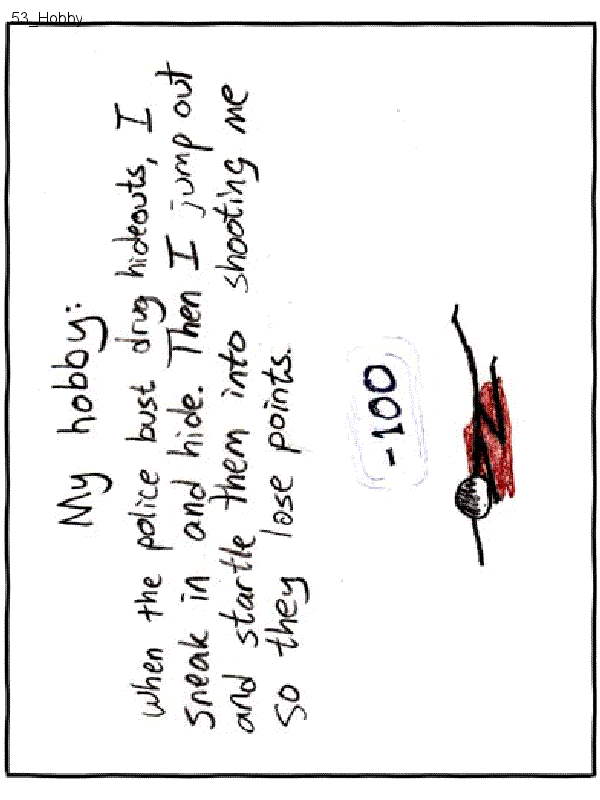 53_Hobby
My hobby:
when the police bust drug hideouts, I
sneak in and hide. Then I jump out
and startle them into shooting me
so they lose points.
-100